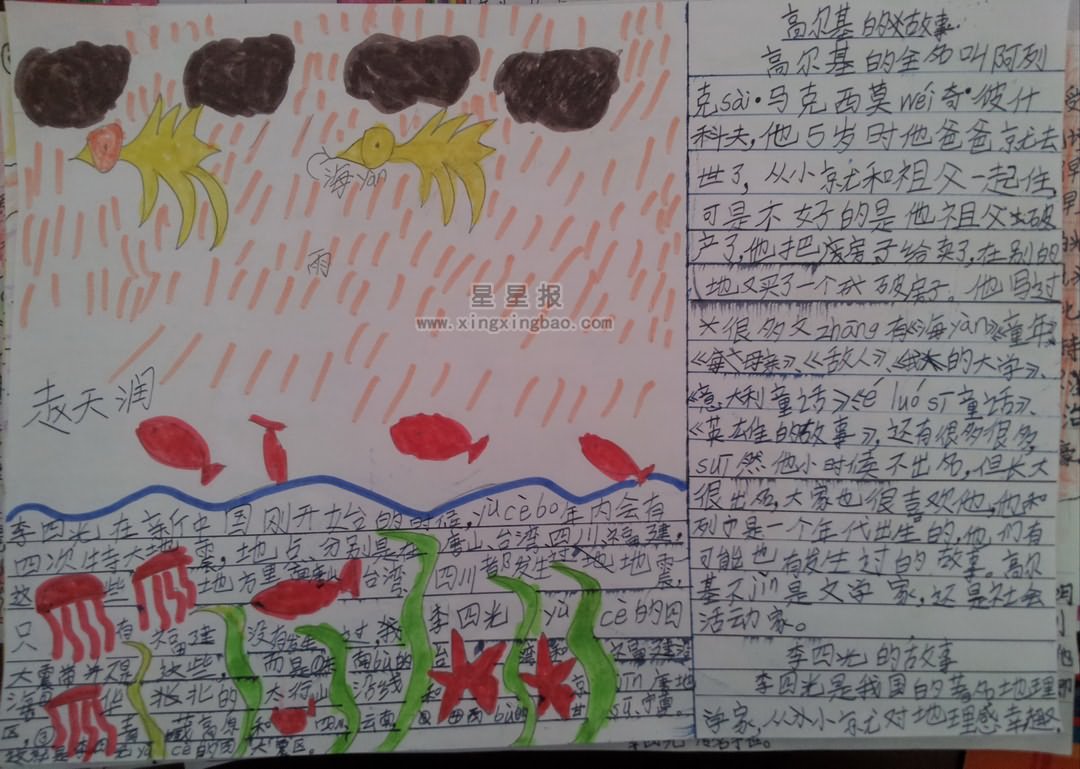 高尔基的故事
高尔基的全名叫阿列
克sài·马克西莫wéi奇·彼什
科夫,他5岁时他爸爸就去
世了,从小就和祖父一起住,
可是不好的是他祖父破
产了,他把房子给卖了,在别的
地又买了一个破房子。他写过
很多文zhāng有《海yàn》《童年》
《母亲》、《敌人》、《我的大学》、
《意大利童话》《é luó sī童话》、
《英雄的故事》,还有很多很多,
suī然他小时候不出名,但长大
很出名,大家也很喜欢他,他和
列宁是一个年代出生的,他们有
可能也有发生过的故事。高尔
基不jǐn是文学家,还是社会
活动家。
李四光的故事
李四光是我国的著名地理
学家,从小就对地理感幸趣,
海yàn
雨
星星报
www.xingxingbao.com
赵天润
李四光在新中国刚开始的时候,yùcèbo年内会有
四次特大地震,地点分别是在唐山、台湾、四川、福建,
这些地方里唐山、台湾、四川都发生过地震,
只有福建没有发生过,我李四光yùcè的四
大震带并不是这些,而是①东南bù的台湾和福建沿
海②华北的太行山沿线和京jīn唐地
区,③青藏高原和四川、云南④西bù的甘sù、宁夏。
这就是李四光yùcè的四大震区。